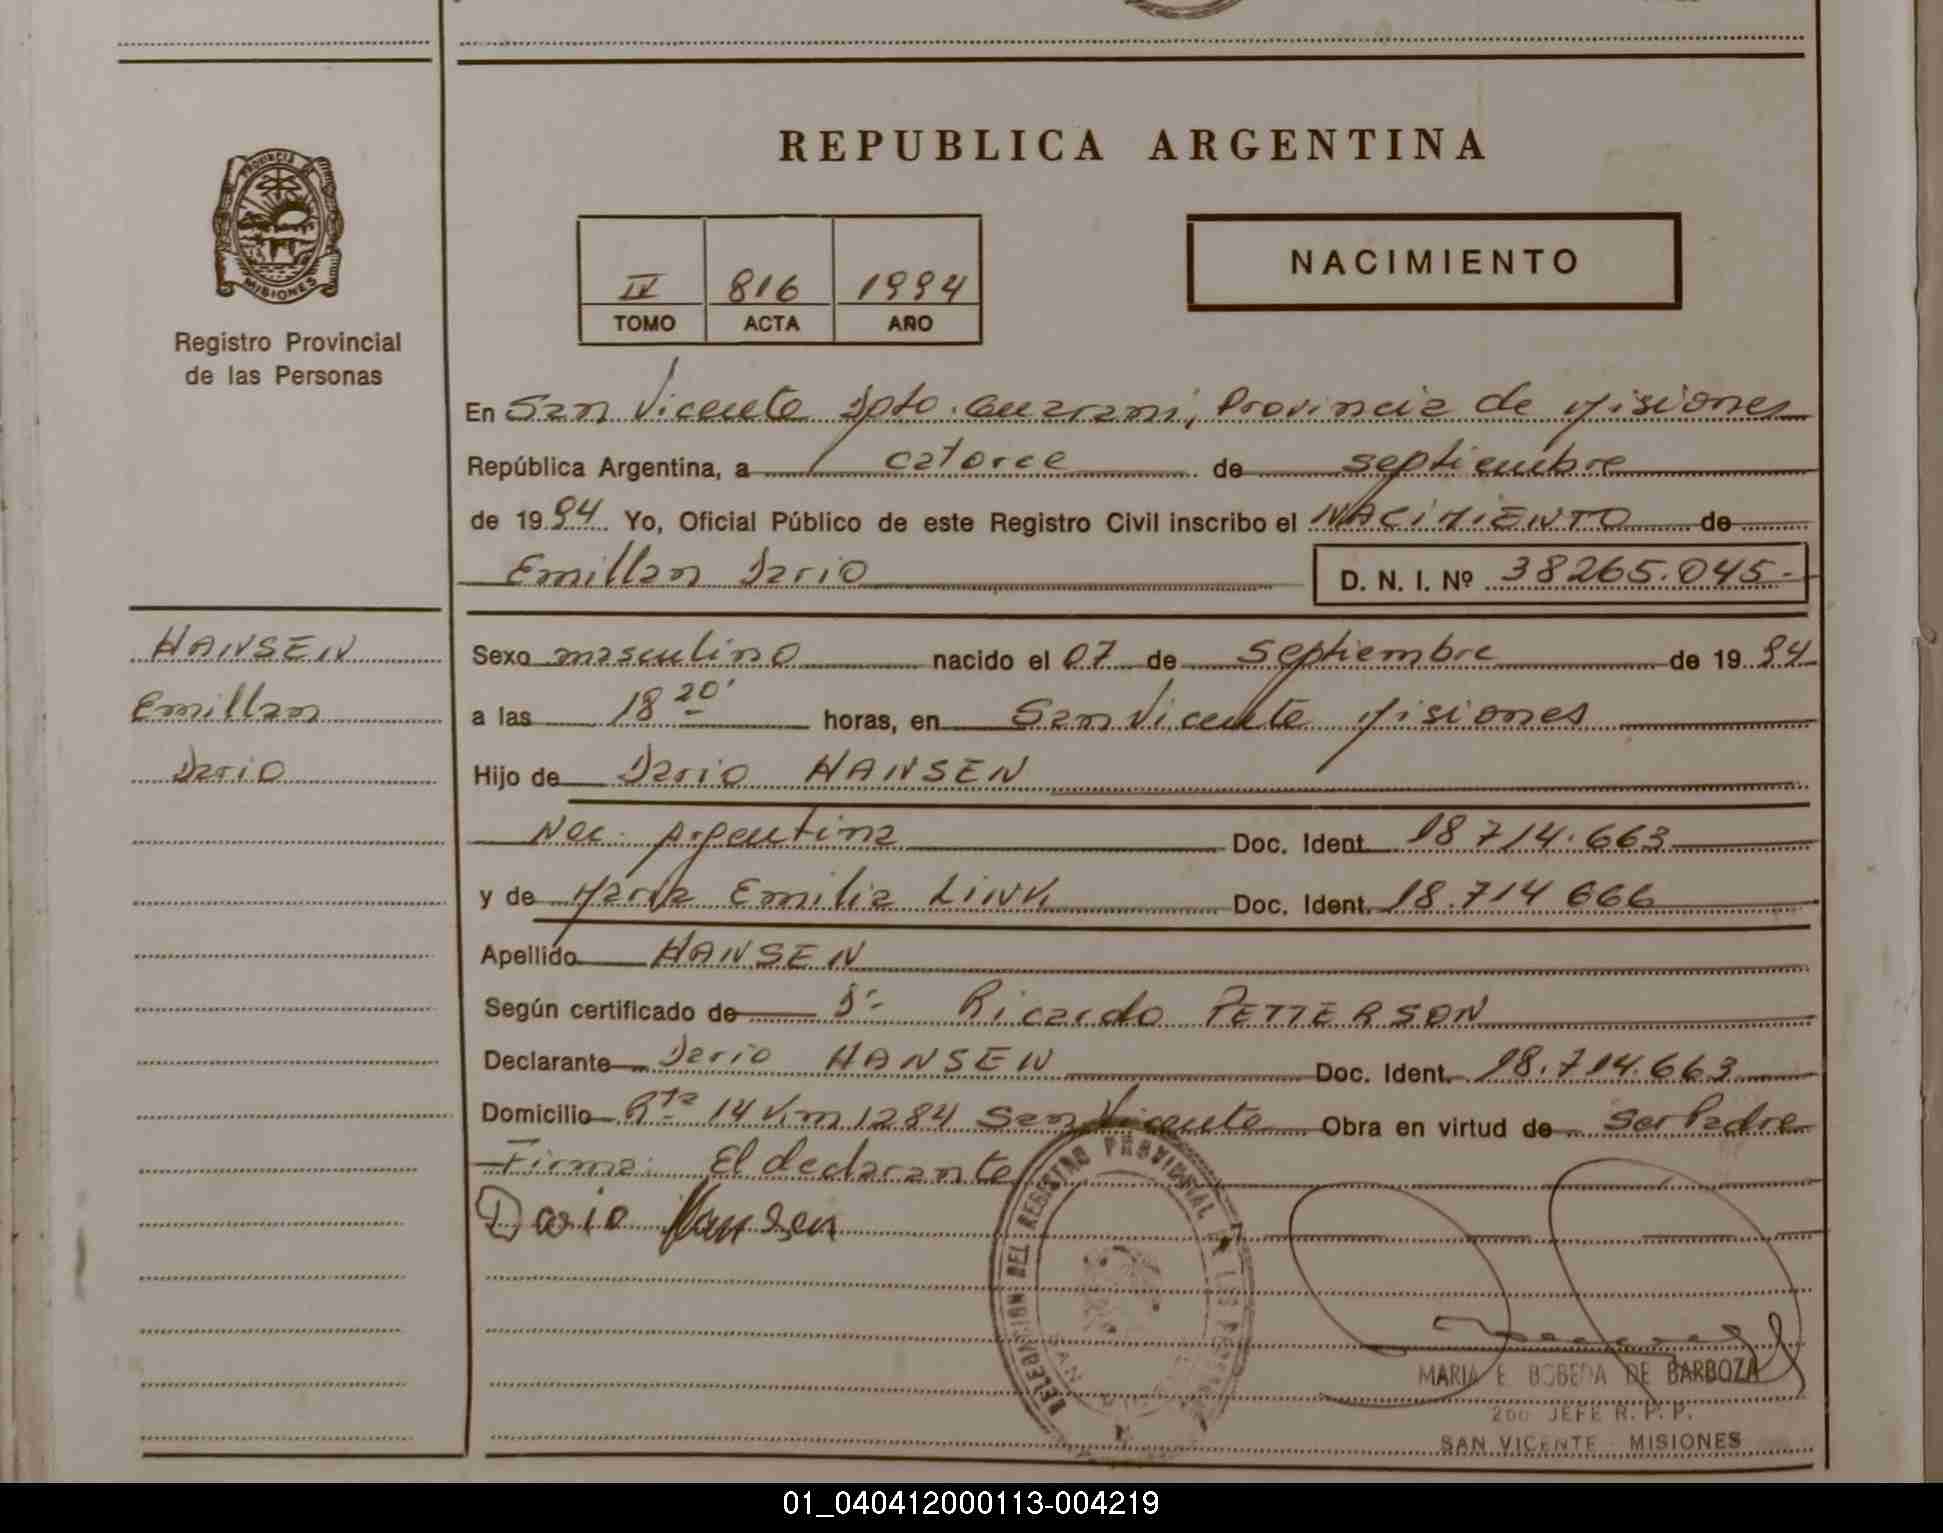 REPUBLICA ARGENTINA
PROVINCIA DE
MISIONES
Registro Provincial
de las Personas
IV 816 1994
TOMO ACTA AÑO
NACIMIENTO
En San Vicente Dpto. Guarani, Provincia de Misiones
República Argentina, a catorce de septiembre
de 1994 Yo, Oficial Público de este Registro Civil inscribo el NACIMIENTO de
Emillan Dario D. N. I. Nº 38265.045.-
HANSEN
Emillan
Dario
Sexo masculino nacido el 07 de septiembre de 1994
a las 18 20' horas, en San Vicente Misiones
Hijo de Dario HANSEN
Nac. Argentina Doc. Ident. 18.714.663
y de Maria Emilia LINK Doc. Ident. 18.714 666
Apellido HANSEN
Según certificado de Dr Ricardo PETTERSON
Declarante Dario HANSEN Doc. Ident. 18.714.663
Domicilio Rta 14 Km 1284 San Vicente Obra en virtud de ser Padre
Firma: El declarante
Dario Hansen
DELEGACION DEL REGISTRO PROVINCIAL DE LAS
SAN
MARIA E. BOBEDA DE BARBOZA
2do JEFE R. P. P.
SAN VICENTE MISIONES
01_040412000113-004219